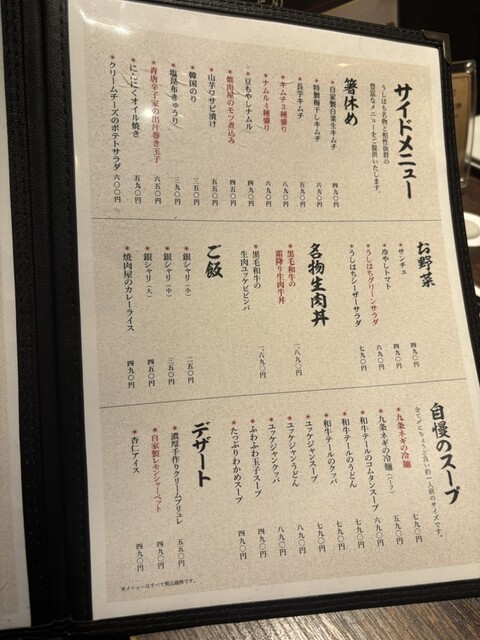 サイドメニュー
うしはち名物と相性抜群の
豊富なメニューをご提供いたします。
箸休め
自家製白菜生キムチ 四九〇円
特製梅干しキムチ 六九〇円
長芋キムチ 五九〇円
キムチ3種盛り 八九〇円
ナムル4種盛り 六九〇円
豆もやしナムル 四九〇円
焼肉屋のモツ煮込み 四五〇円
山芋ワサビ漬け 五五〇円
韓国のり 三五〇円
塩昆布きゅうり 三九〇円
青唐辛子家の出汁巻き玉子 六五〇円
にんにくオイル焼き 五九〇円
クリームチーズのポテトサラダ 六〇〇円
お野菜
サンチュ 四九〇円
冷やしトマト 四九〇円
うしはちグリーンサラダ 六九〇円
うしはちシーザーサラダ 七九〇円
名物生肉丼
黒毛和牛の
霜降り生肉牛丼 一、八九〇円
黒毛和牛の
生肉ユッケビビンバ 一、六九〇円
ご飯
銀シャリ(小) 二五〇円
銀シャリ(中) 三五〇円
銀シャリ(大) 四五〇円
焼肉屋のカレーライス 四九〇円
自慢のスープ
全て〆にちょうど良い約一人前のサイズです。
九条ネギの冷麺 七九〇円
九条ネギの冷麺(ハーフ) 五九〇円
和牛テールのコムタンスープ 六九〇円
和牛テールのうどん 七九〇円
和牛テールのクッパ 七九〇円
ユッケジャンスープ 七九〇円
ユッケジャンうどん 八九〇円
ユッケジャンクッパ 八九〇円
ふわふわ玉子スープ 四九〇円
たっぷりわかめスープ 四九〇円
デザート
濃厚手作りクリームブリュレ 五五〇円
自家製レモンシャーベット 四九〇円
杏仁アイス 四九〇円
※メニューはすべて税込価格です。